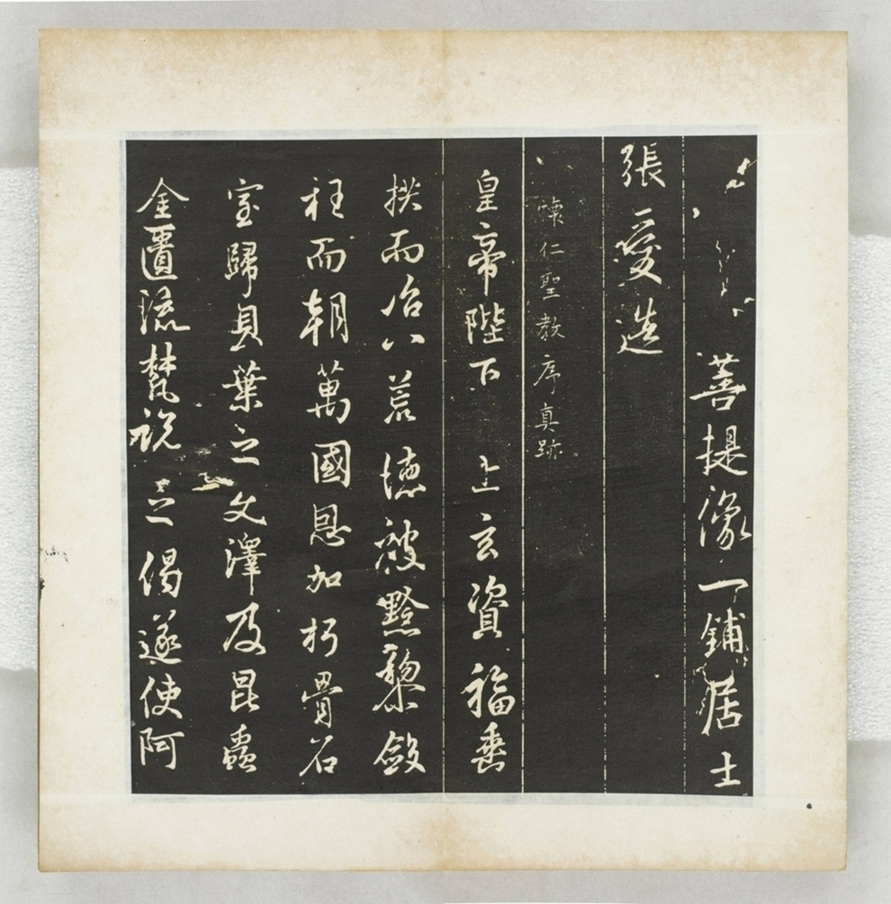 菩提像一鋪居士
張愛造
懐仁聖教序真跡
皇帝陛下 上玄資福垂
拱而治八荒德被黔黎斂
衽而朝萬國恩加朽骨石
室歸貝葉之文澤及昆蟲
金匱流梵說之偈遂使阿